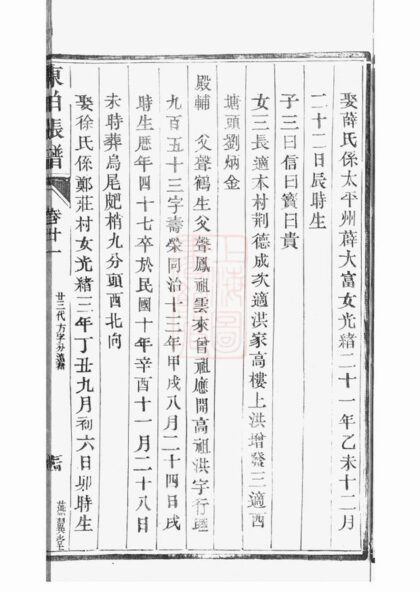 娶薛氏係太平州薜大富女光緒二十一年乙未十二月
二十二日辰時生
子三曰信曰寶曰貴
女三長適木村荆德成次適洪家高樓上洪增發三適西
塘頭劉炳金
殿輔 父聲鶴生父聲鳳祖雲來曾祖應開高祖洪字行
九百五十三字壽榮同治十三年甲戌八月二十四日戌
時生歷年四十七卒於民國十年辛酉十一月二十八日
未時葬烏尾䑕梢九分頭酉北向
娶徐氏係鄭莊村女光緒三年丁丑九月初六日卯時生
東泊張譜
卷廿一
廿三代方字分
燕翼堂